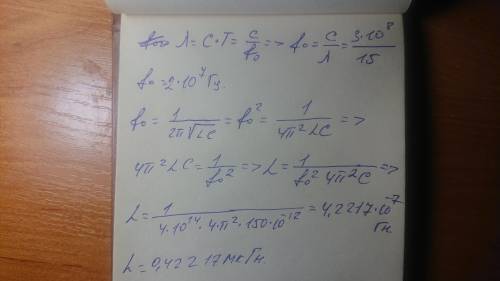 λ = C·T = C/f₀ => f₀ = C/λ = 3·10⁸/15
f₀ = 2·10⁷ Гц.
f₀ = 1/(2π√LC) = f₀² = 1/(4π²LC) =>
4π²LC = 1/f₀² => L = 1/(f₀² 4π²C) =>
L = 1/(4·10¹⁴·4·π²·150·10⁻¹²) = 4,2217·10⁻⁷ Гн
L = 0,42217 мкГн